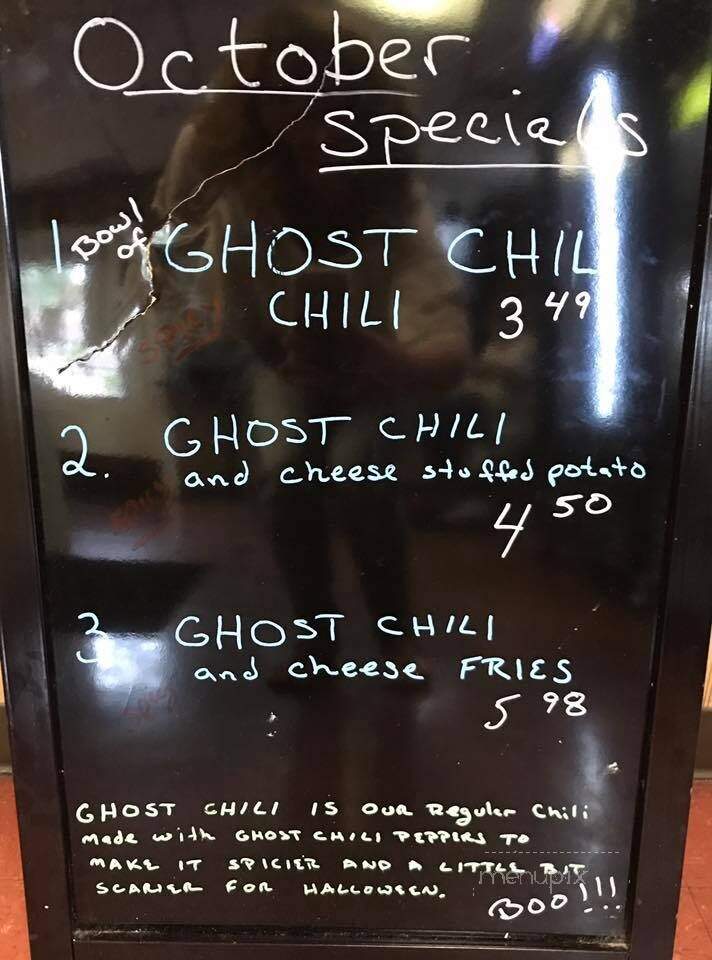 October
Specials
1. Bowl of GHOST CHIL
CHILI 3 49
SPICY
2. GHOST CHILI
and cheese stuffed potato
SPICY
4 50
3 GHOST CHILI
and cheese FRIES
SPICY
5 98
GHOST CHILI IS OUR Regular Chili
Made with GHOST CHILI PEPPERS TO
MAKE IT SPICIER AND A LITTLE BIT
SCARIER FOR HALLOWEEN.
menupix
BOO!!!